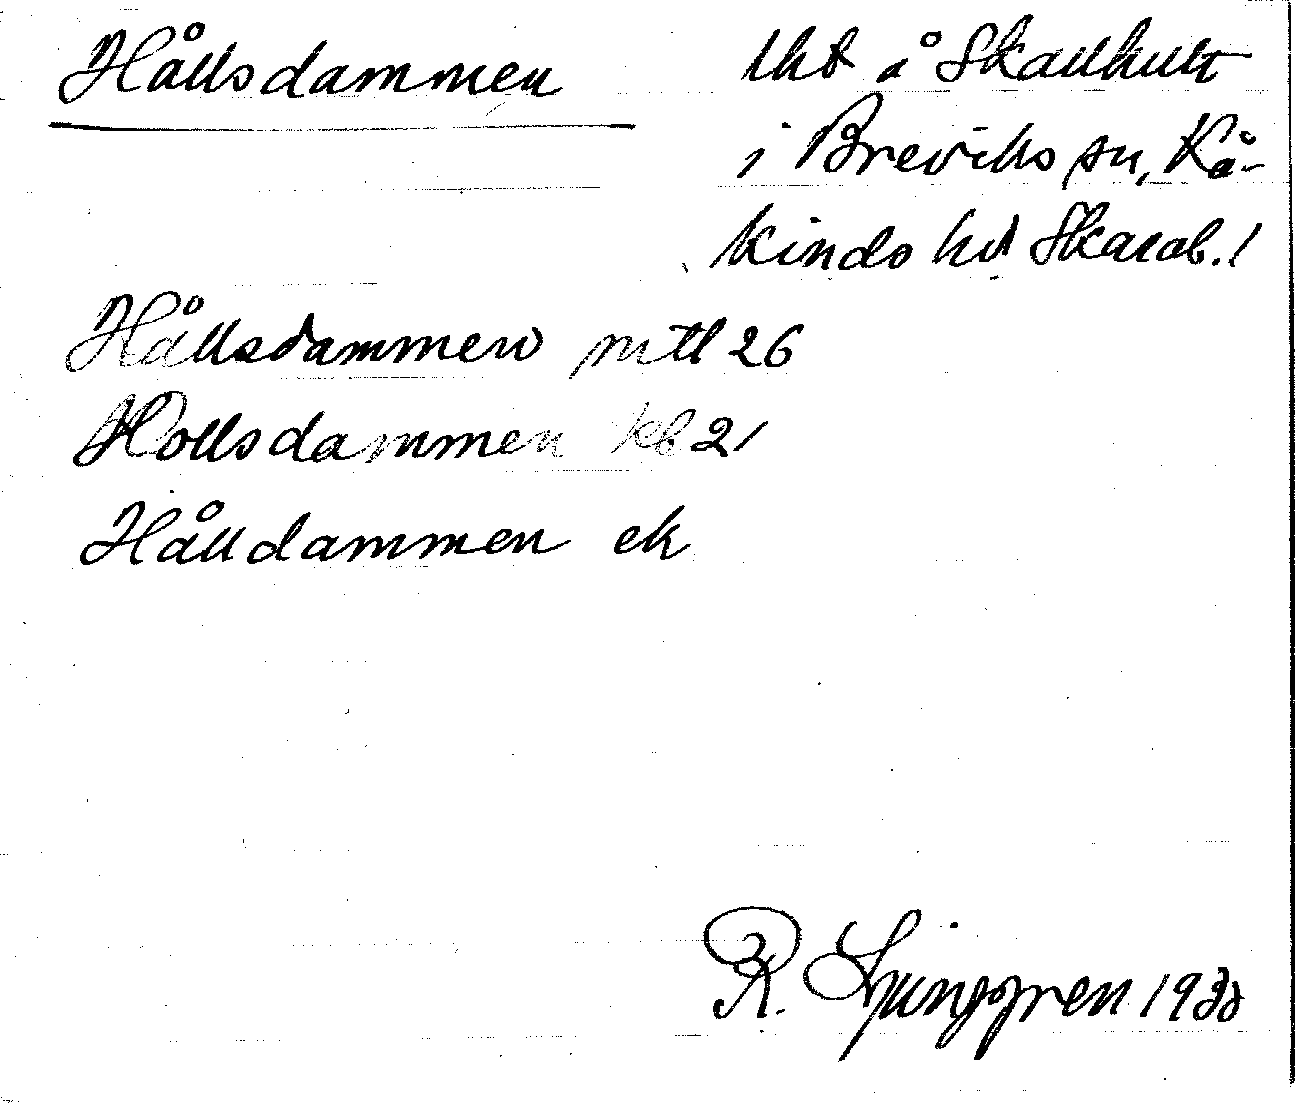 Hållsdammen
lht å Skallhult
i Breviks sn, Kå-
kinds hd Skarab. l
Hållsdammen mtl 26
Hollsdammen kb 21
Hålldammen ek
R. Ljunggren 1930